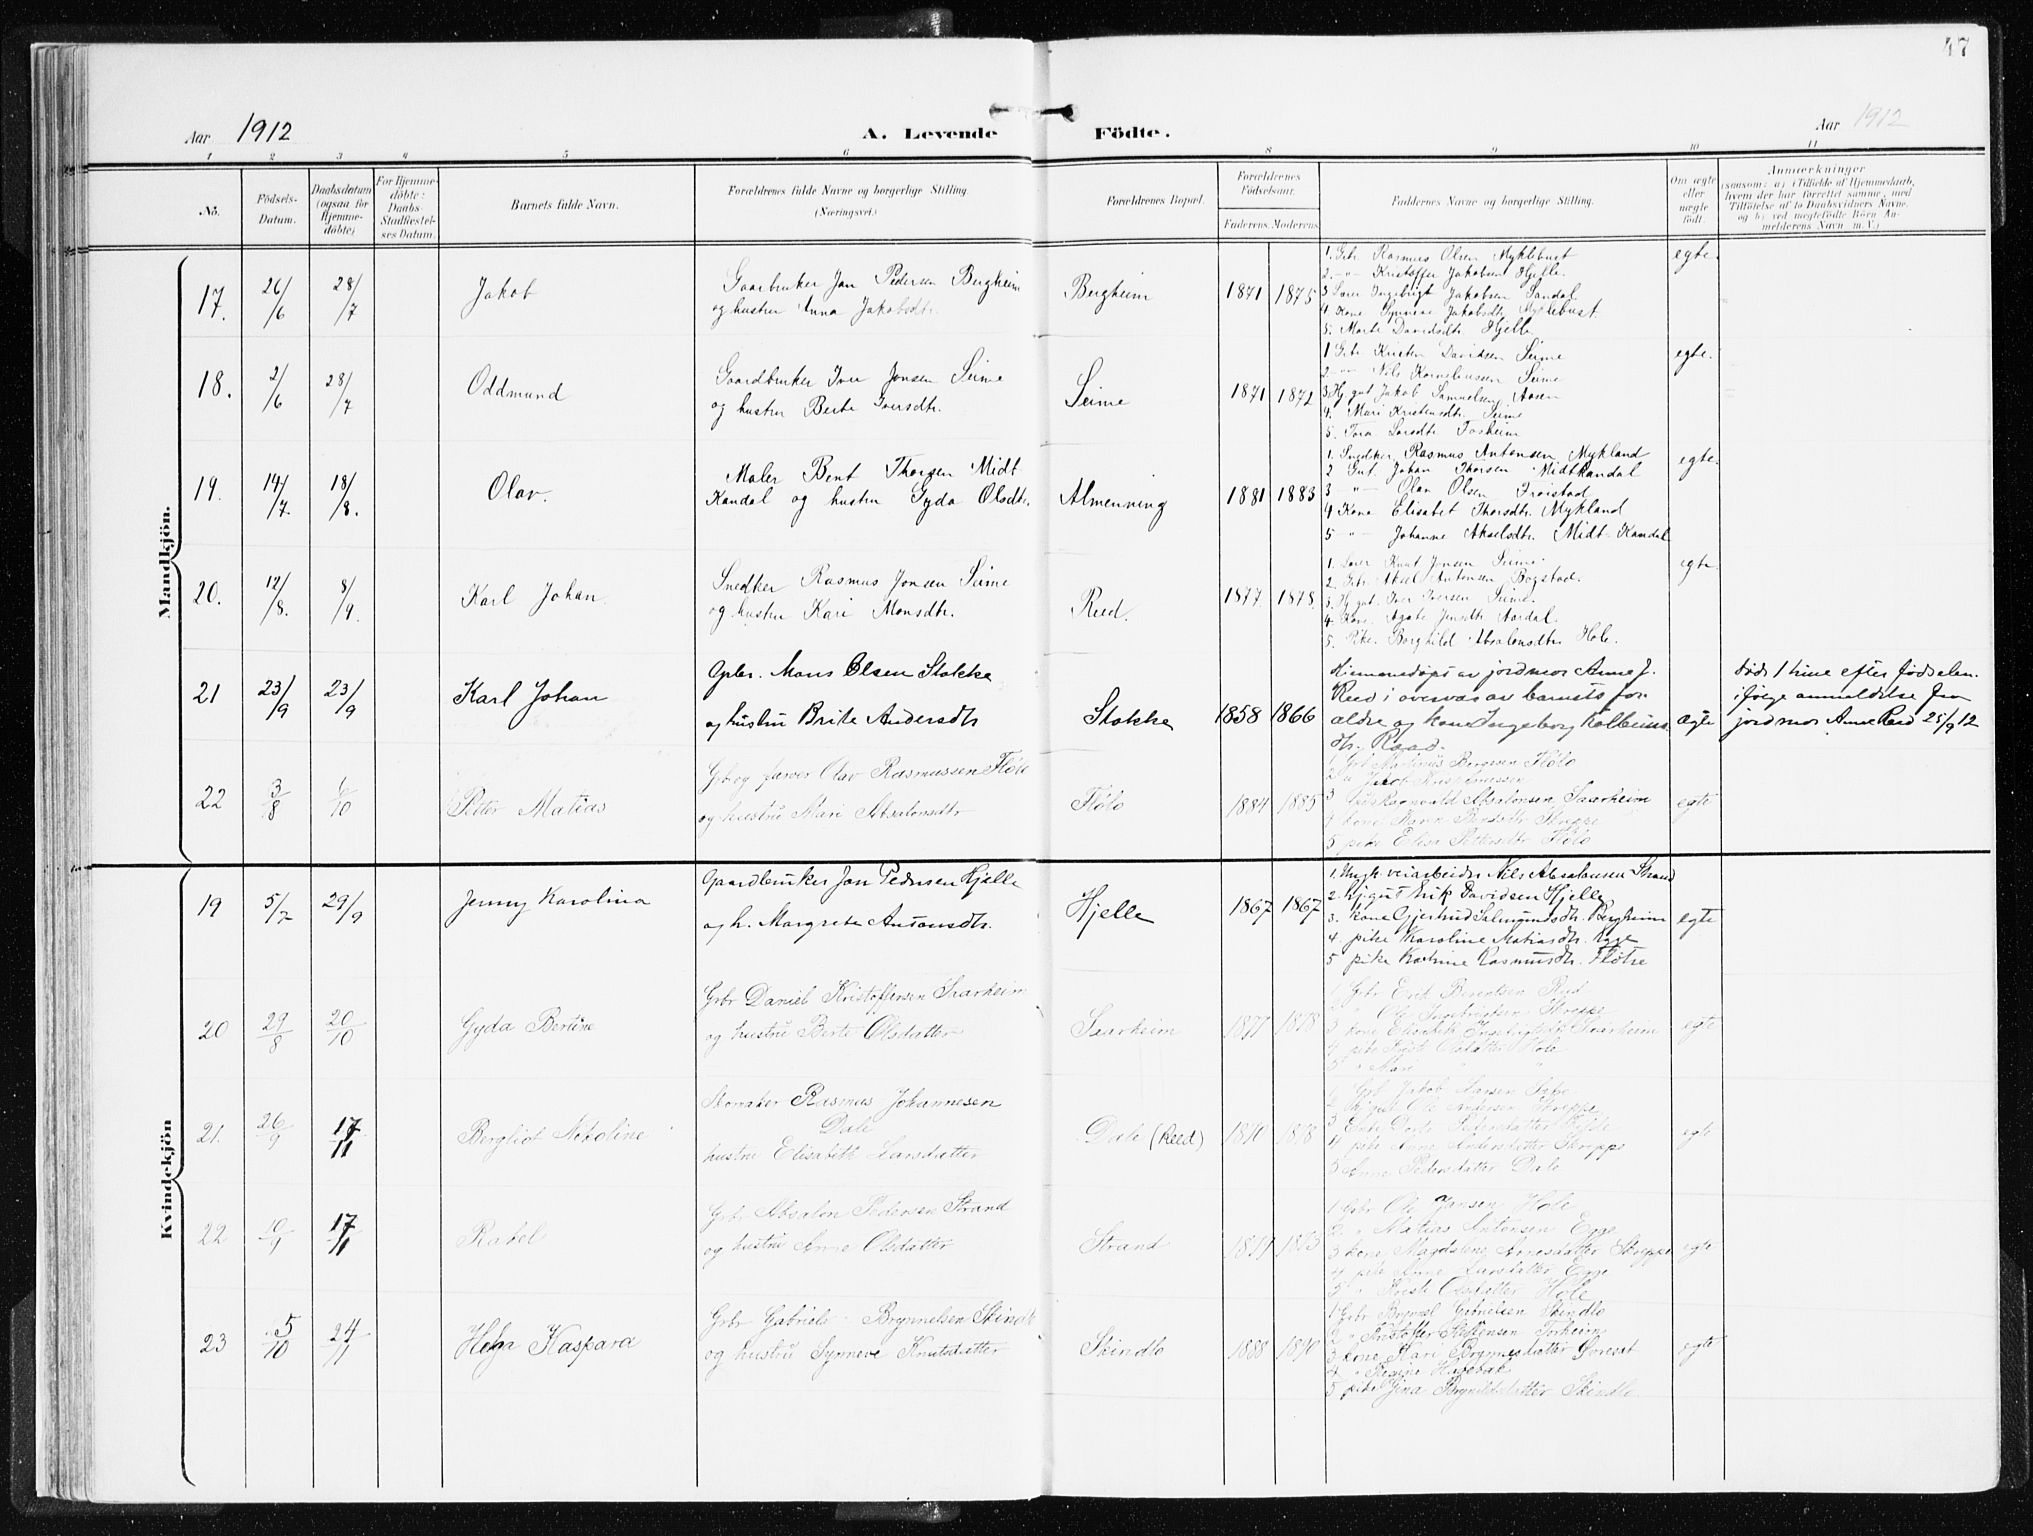 47
Aar 1912 A. Levende Födte. Aar 1912
1 2 3 4 5 6 8 9 10 11
No. Födsels-Datum. Daabsdatum (ogsaa for Hjemmedöbte) For Hjemmedöbte: Daabs-Stadfæstelses Datum. Barnets fulde Navn. Forældrenes fulde Navne og borgerlige Stilling. (Næringsvei.) Forældrenes Bopæl. Forældrenes Födselsaar. Faderens. Moderens. Faddernes Navne og borgerlige Stilling. Om ægte eller uægte födt. Anmærkninger (saasom: a) i Tilfælde af Hjemmedaab, hvem der har forrettet samme, med Tilföielse af to Daabsvidners Navne, og b) ved uægtefödte Börn Anmelderens Navn m.V.)
Mandkjön.
17. 26/6 28/7 Jakob
Gaarbruker Jon Pedersen Bergheim
og hustru Anna Jakobsdtr.
Bergheim 1871 1875
1. Gbr. Rasmus Olsen Myklebust
2. -"- Kristoffer Jakobsen Hjelle
3 Lærer Ingebrigt Jakobsen Sandal
4. Kone Synneve Jakobsdtr Myklebust
5. Marte Davidsdtr. Hjelle
egte.
18. 2/6 28/7 Oddmund
Gaardbruker Iver Jonsen Seime
og hustru Berte Iversdtr.
Seime 1871 1872
1 Gbr. Kristen Davidsen Seime
2 -"- Nils Korneliussen Seime
3 Hj. gut Jakob Samuelsen Aasen
4. Mari Kristensdtr. Seime
5. Tora Larsdtr Josheim
egte.
19. 14/7 18/8. Olav.
Maler Bent Thorsen Midt
Kandal og hustru Gyda Olsdtr.
Almenning 1881 1883
1. Snedker Rasmus Antonsen Mykland
2 Gut. Johan Thorsen Midtkandal
3 -"- Olav Olsen Troistad
4 Kone Elisabet Thorsdtr. Mykland
5 -"- Johanne Akselsdtr. Midt-Kandal
egte.
20. 12/8. 8/9. Karl Johan.
Snedker Rasmus Jonsen Seime
og hustru Kari Monsdtr.
Reed. 1877 1878
1. Lærer Knut Jonsen Seime.
2. Gbr. Aksel Antonsen Bogstad.
3. Hj. gut. Iver Iversen Seime.
4. Kone. Agate Jensdtr Aardal.
5. Pike. Borghild Absalonsdtr. Hole.
egte
21 23/9 23/9 Karl Johan
Gpbr. Mons Olsen Stokke
og hustru Brite Andersdtr
Stokke 1858 1866
Hjemmedøpt av jordmor Anne J.
Reed i overvær av barnets for-
ældre og kone Ingeborg Kolbeins-
dtr. Raad.
ægte
Død 1 time efter fødselen
ifølge anmeldelse fra
jordmor Anne Reed 25/9 12
22 3/8 6/10 Peter Matias
Grb og farver Olav Rasmussen Fløto
og hustru Mari Absalonsdtr
Fløto 1884 1885
1 Grb Martinus Berntsen Fløto
2 " Jacob
3 Ragnvald Absalonsen Saarheim
4 kone Karen Bendsdtr Skrøppe
5 pike Elise Pettersdtr Fløto
egte
Kvindekjön
19 5/7 29/9 Jenny Karolina
Gaardbruker Jon Pedersen Hjelle
og h. Margrete Antonsdtr.
Hjelle 1867 1867
1. Nils Absalonsen Strand
2. hj.gut Erik Davidsen Hjelle
3. kone Gjertrud Salmundsdtr. Bergheim
4. pike Karoline Matiasdtr. Egge
5 pike Katrine Rasmusdtr. Fløtre
egte
20 29/8 20/10 Gyda Bertine
Grbr Daniel Kristoffersen Saarheim
og hustru Berte Olsdatter
Saarheim 1877 1878
1 Grbr Erik Berentsen Reed
2 " Ole Ingebrigtsen Skrøppe
3 kone Elisabeth Ingebrigtsdtr Saarheim
4 pike Kriste Olsdatter Hole
5 " Mari " "
egte
21. 26/9 17/11 Bergliot Nikoline
Rasmus Johannesen
Dale
hustru Elisabeth Larsdatter
Dale (Reed) 1870 1878
1 Grb Jakob Larsen
2 Hj.gut Ole Andersen Skrøppe
3 Dorte Pedersdatter
4 pike Anne Andersdatter Skrøppe
5 Anne Pedersdatter Dale
egte
22 10/9 17/11 Rakel
Grbr Absalon Pedersen Strand
og hustru Anne Olsdatter
Strand 1871 1873
1 Grbr Ole Jansen Hole
2 " Matias Antonsen Egge
3 kone Magdalene Aanesdatter Skrøppe
4 pike Anne Larsdatter Egge
5 " Kriste Olsdatter Hole
egte
23 5/10 24/11 Helga Kaspara
Grbr Gabriels Brynnelsen Skindlo
og hustru Synneve Knutsdatter
Skindlo 1888 1890
1 Grbr Brynnel Gabrielsen Skindlo
2 " Kristoffer Steffensen Torheim
3 kone Kari Brynnelsdatter Øvreset
4 " Regine Hagebak
5 pike Gina Brynildsdatter Skindlo.
egte